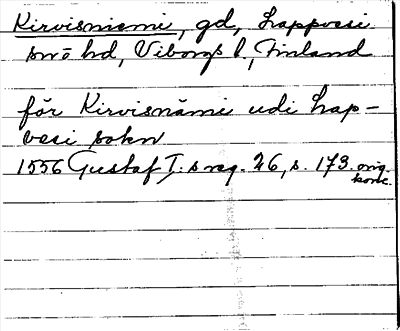 Kirvisniemi, gd, Lappvesi
snö hd, Viborgs l., Finland
för Kirvisnämi udi Lap-
vesi sokn
1556 Gustaf I:s reg. 26, s. 173. orig.
konc.